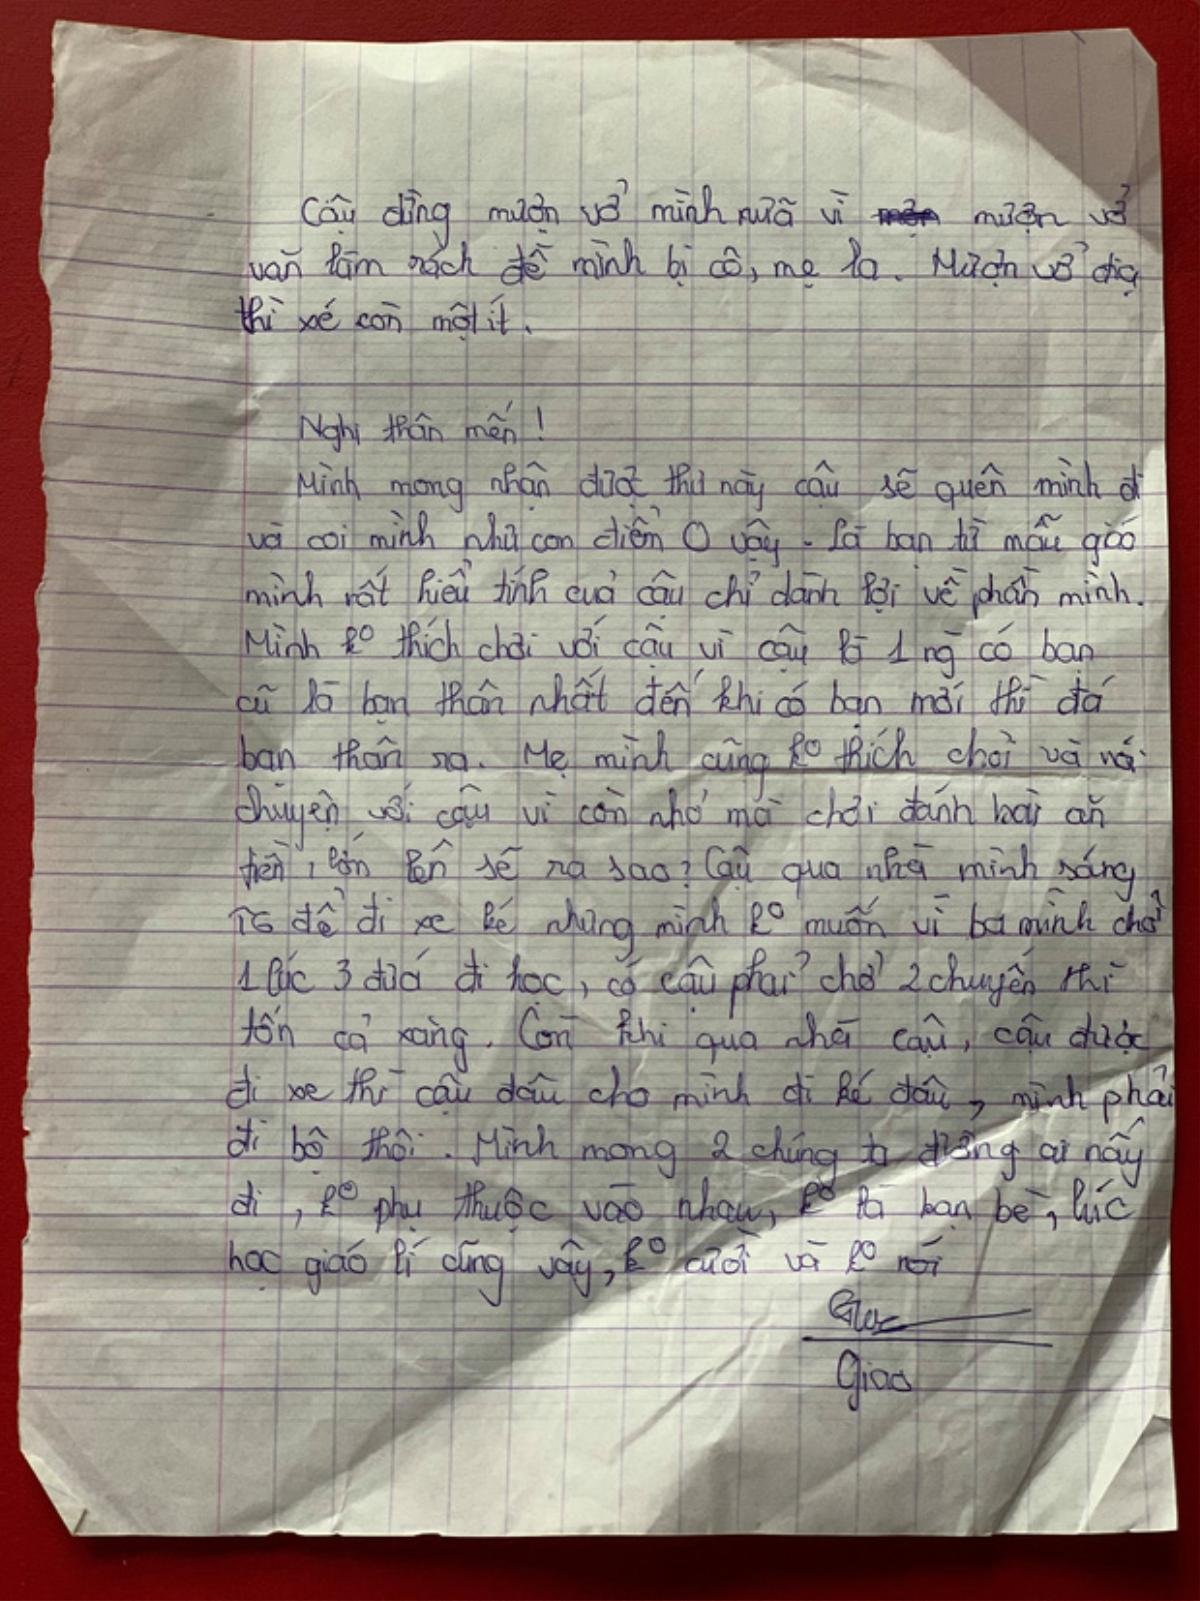 Cậu đừng mượn vở mình nữa vì mượn vở
văn làm rách để mình bị cô, mẹ la. Mượn vở địa
thì xé còn một ít.
Nghi thân mến !
Mình mong nhận được thư này cậu sẽ quên mình đi
và coi mình như con điểm 0 vậy. Là bạn từ mẫu giáo
mình rất hiểu tính cuả cậu chỉ dành lợi về phần mình.
Mình k° thích chơi với cậu vì cậu là 1 ng có bạn
cũ là bạn thân nhất đến khi có bạn mới thì đá
bạn thân ra. Mẹ mình cũng k° thích chơi và nói
chuyện với cậu vì còn nhỏ mà chơi đánh bài ăn
tiền, lớn lên sẽ ra sao? Cậu qua nhà mình sáng
T6 để đi xe ké nhưng mình k° muốn vì ba mình chở
1 lúc 3 đứa đi học, có cậu phải chở 2 chuyến thì
tốn cả xăng. Còn khi qua nhà cậu, cậu được
đi xe thì cậu đâu cho mình đi ké đâu, mình phải
đi bộ thôi. Mình mong 2 chúng ta đường ai nấy
đi, k° phụ thuộc vào nhau, k° là bạn bè, lúc
học giáo lí cũng vậy, k° cười và k° nói
Giao